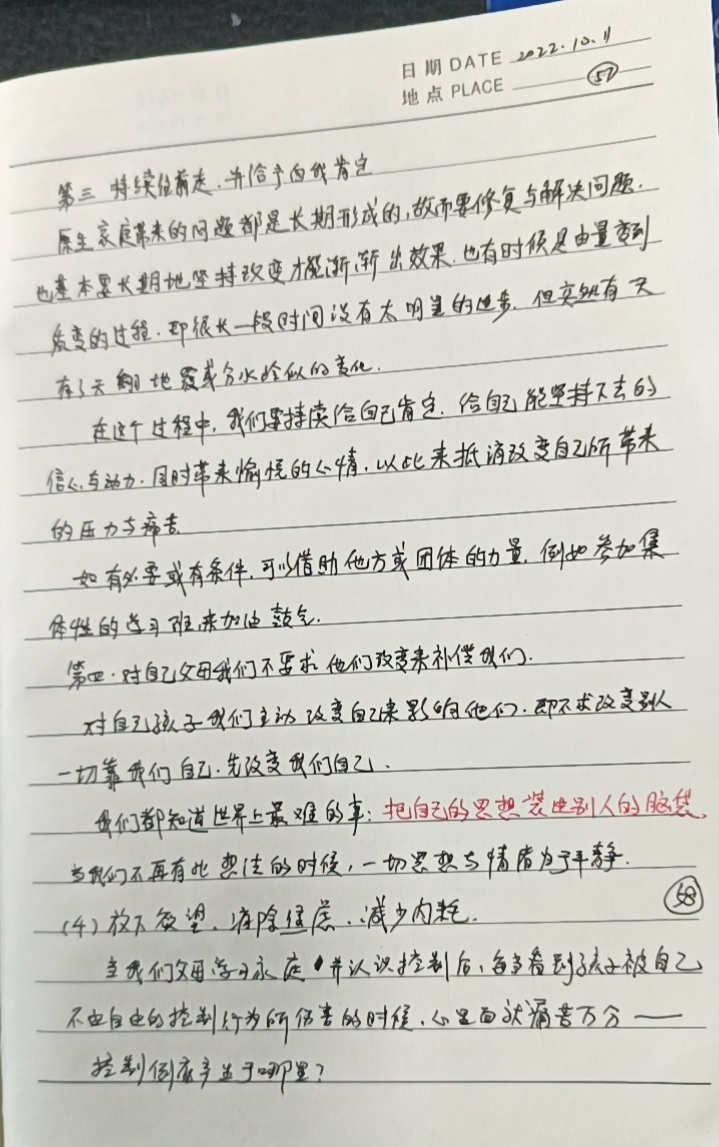 日期 DATE 2022.10.11
地点 PLACE 57
第三 持续往前走.并给予自我肯定
原生家庭带来的问题都是长期形成的,故而要修复与解决问题.
也基本要长期地坚持改变才能渐渐出效果.也有时候是由量变到
质变的过程.即很长一段时间没有太明显的进步.但突然有天
有了天翻地覆或分水岭似的变化.
在这个过程中,我们要持续给自己肯定.给自己能坚持下去的
信心与动力.同时带来愉悦的心情.以此来抵消改变自己所带来
的压力与痛苦.
如有必要或有条件.可以借助他方或团体的力量.例如参加集
体性的学习班来加油鼓气.
第四.对自己父母我们不要求他们改变来补偿我们.
对自己孩子我们主动改变自己来影响他们.即不求改变别人
一切靠我们自己.先改变我们自己.
我们都知道世界上最难的事:把自己的思想装进别人的脑袋.
当我们不再有此想法的时候,一切思想与情绪趋于平静.
58
(4)放下欲望.消除焦虑.减少内耗.
当我们父母学习永庭 并认识控制后,每当看到孩子被自己
不由自由的控制行为所伤害的时候.心里面就痛苦万分——
控制倒底产生于哪里?